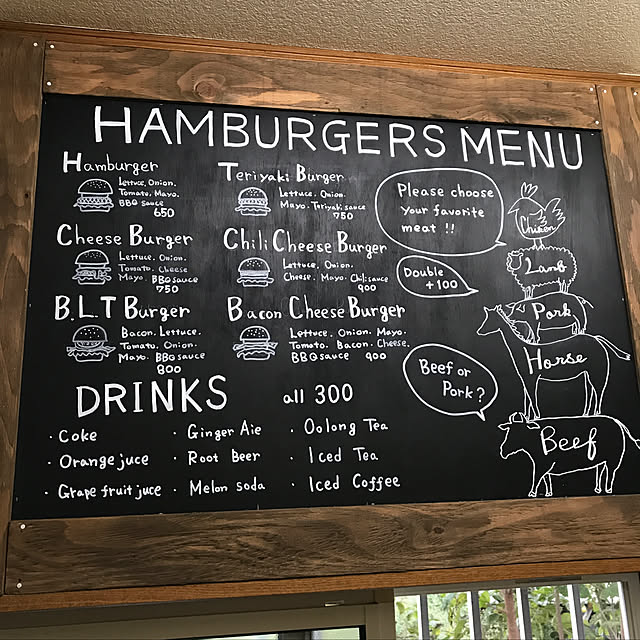 HAMBURGERS MENU
Hamburger
Lettuce. Onion.
Tomato. Mayo.
BBQ sauce
650
Teriyaki Burger
Lettuce. Onion.
Mayo. Teriyaki sauce
750
Cheese Burger
Lettuce. Onion.
Tomato. Cheese
Mayo. BBQ sauce
750
Chili Cheese Burger
Lettuce. Onion.
Cheese. Mayo. Chili sauce
900
B.L.T Burger
Bacon. Lettuce.
Tomato. Onion.
Mayo. BBQ sauce
800
Bacon Cheese Burger
Lettuce. Onion. Mayo.
Tomato. Bacon. Cheese.
BBQ sauce 900
Please choose
your favorite
meat !!
Double
+100
Beef or
Pork?
Chicken
Lamb
Pork
Horse
Beef
DRINKS all 300
· Coke
· Orange juce
· Grape fruit juce
· Ginger Ale
· Root Beer
· Melon soda
· Oolong Tea
· Iced Tea
· Iced Coffee